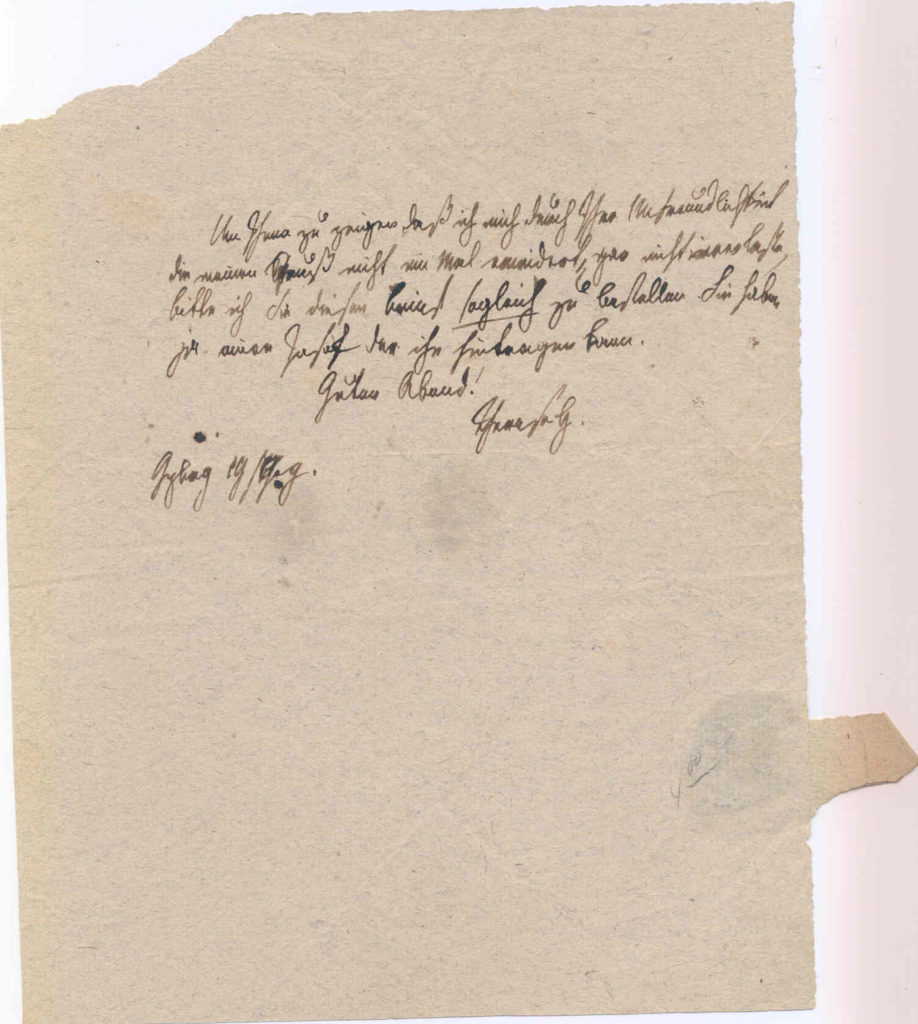 Um Ihnen zu zeigen daß ich mich durch Ihre Unfreundlichkeit
die meinen Gruß nicht ein Mal erwidert, gar nicht irren lasse,
bitte ich Sie diesen Brief sogleich zu bestellen Sie haben
ja einen Josef der ihn hintragen kann.
Guten Abend!
Therese G.
19
400